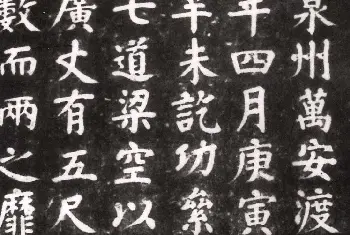 泉州萬安渡
年四月庚寅
辛未訖功絫
七道梁空以
廣丈有五尺
數而兩之靡